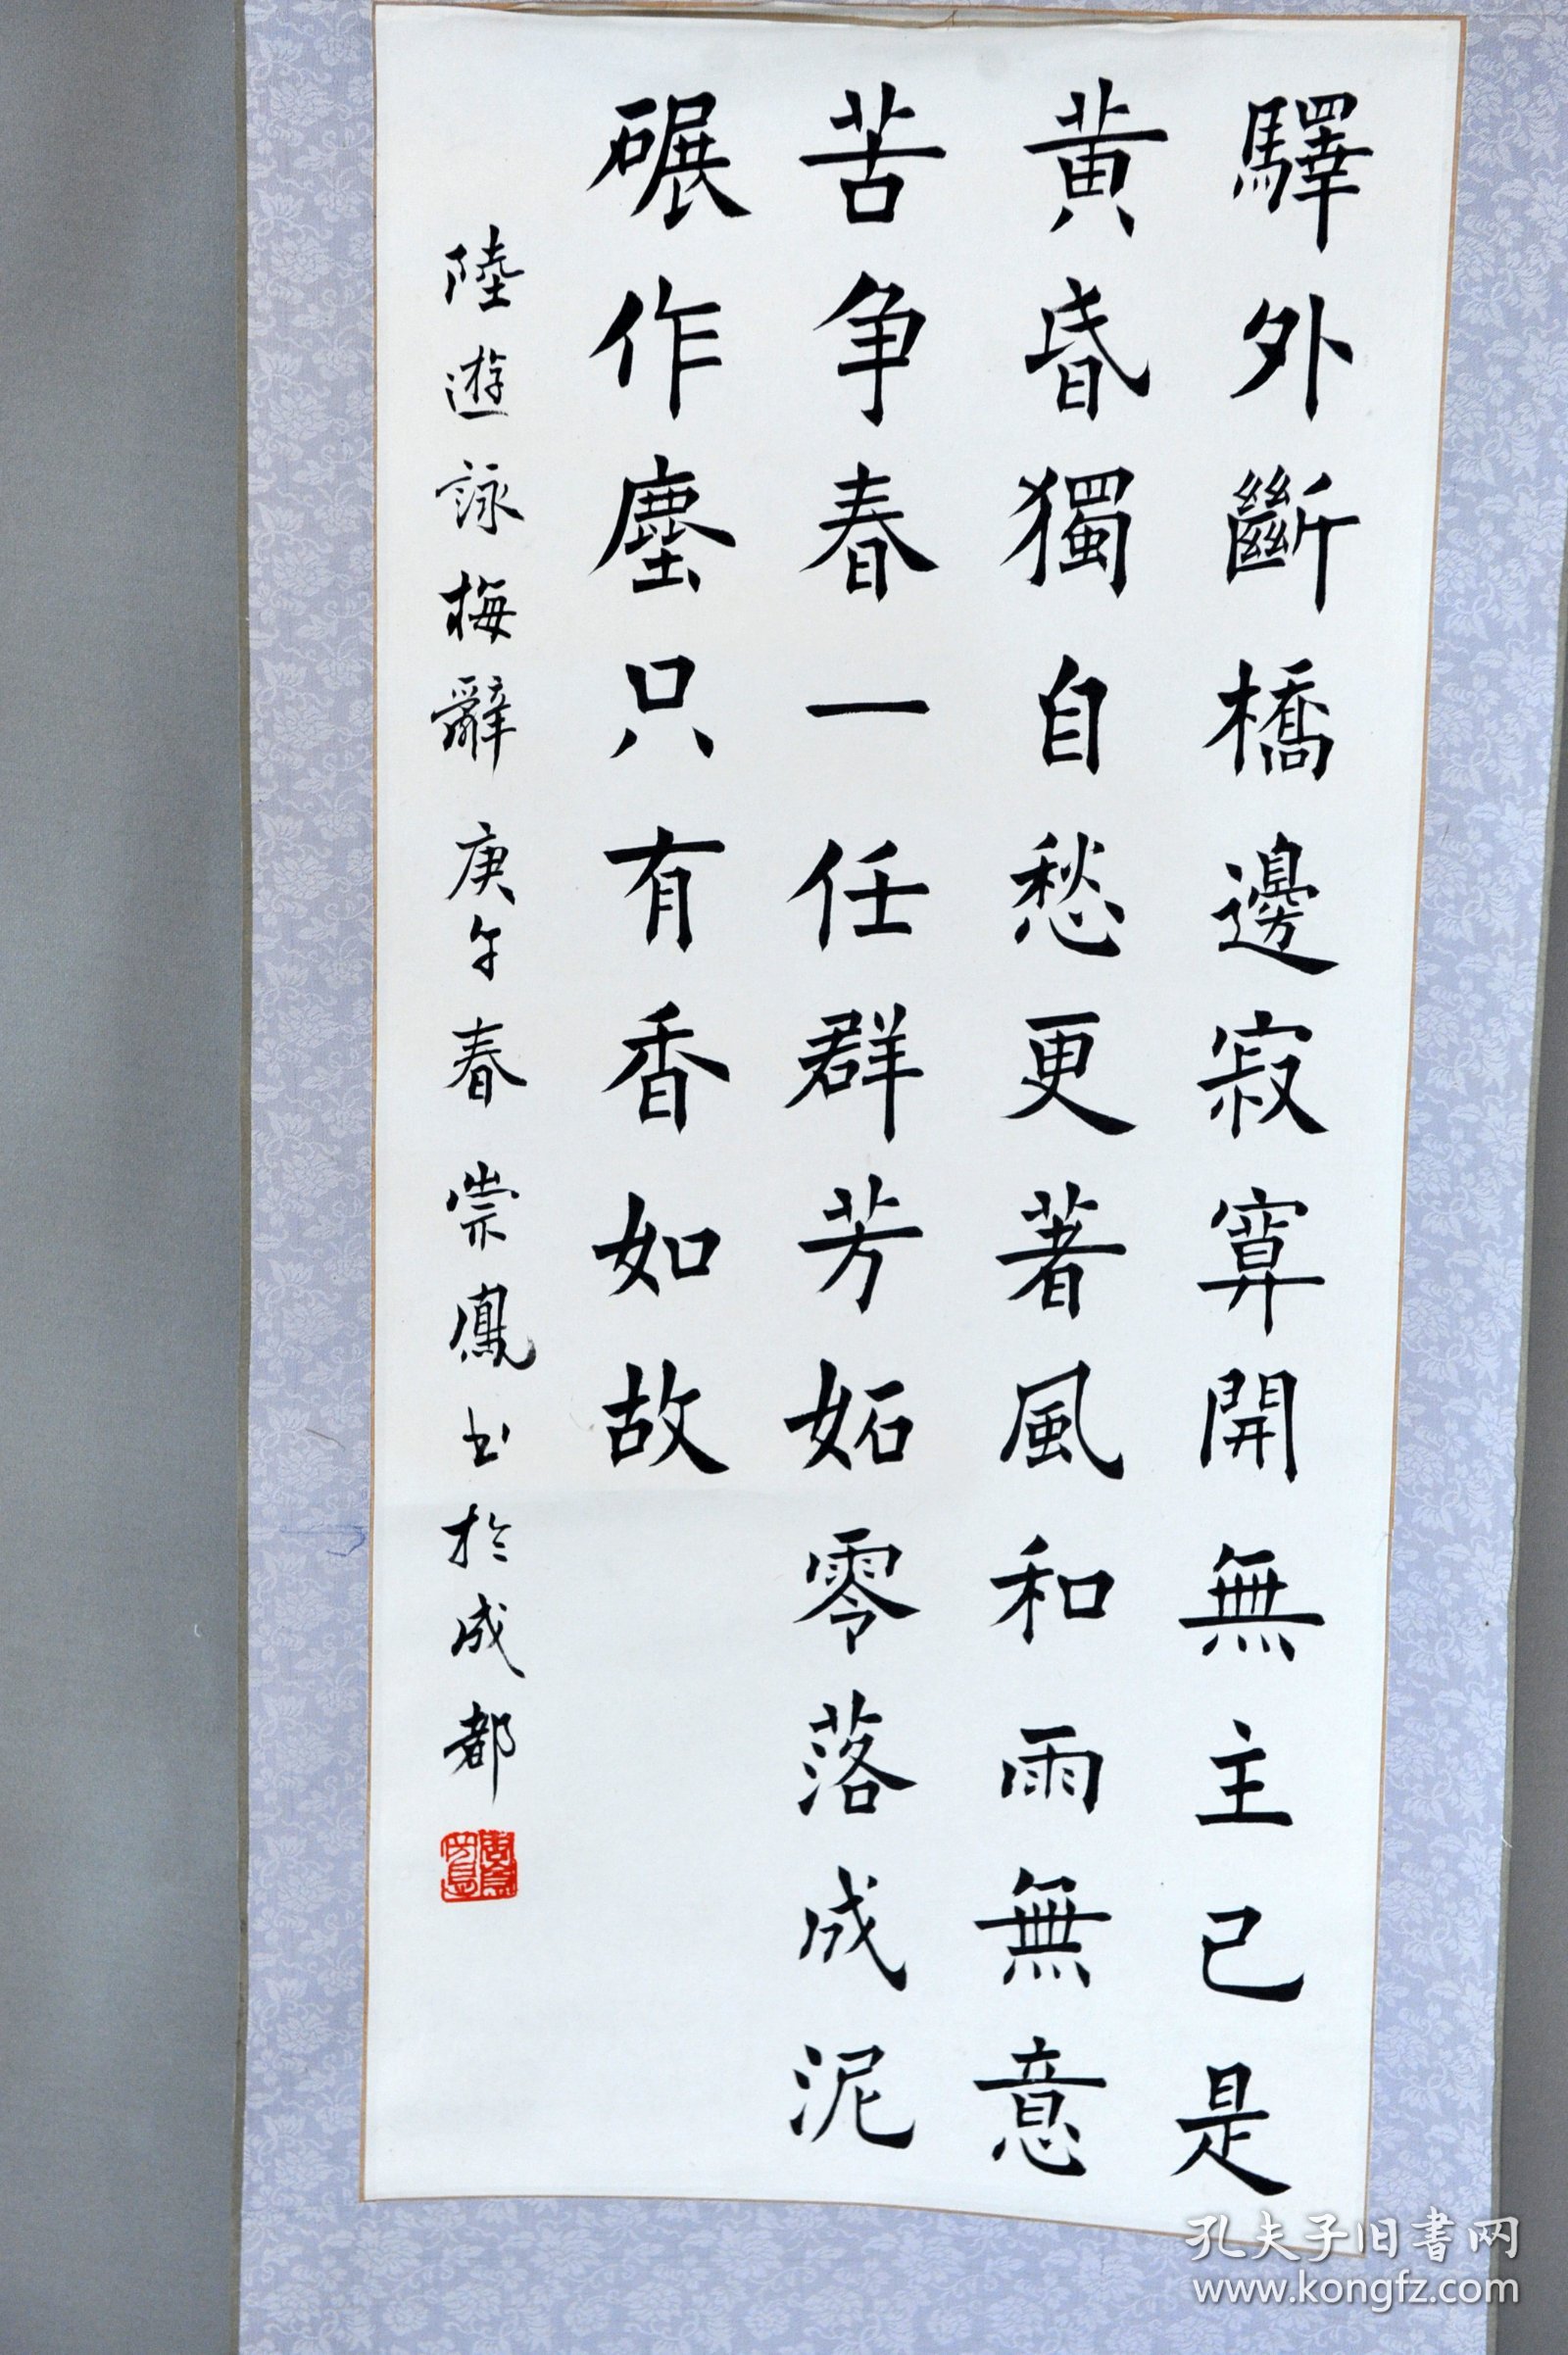 驛外斷橋邊寂寞開無主已是
黄昏獨自愁更著風和雨無意
苦争春一任群芳妒零落成泥
碾作塵只有香如故
陸遊詠梅辭 庚午春 崇鳳书於成都
孔夫子旧書网
www.kongfz.com